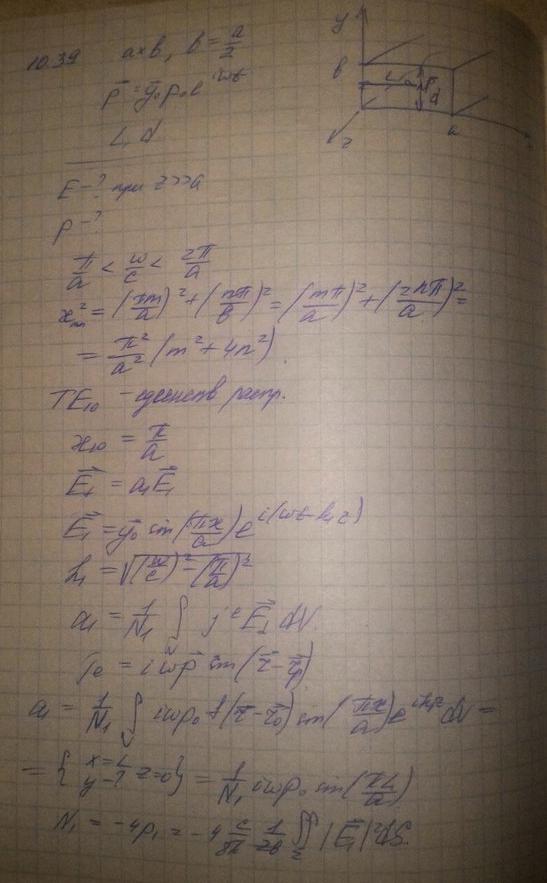 10.39 a×b, b = a/2
p⃗ = y⃗₀ p₀ e^{iωt}
L, d
E - ? при z>>a
P - ?
π/a < ω/c < 2π/a
æ²ₘₙ = (πm/a)² + (nπ/b)² = (mπ/a)² + (2nπ/a)² =
= π²/a² (m² + 4n²)
TE₁₀ - единств распр.
æ₁₀ = π/a
E⃗ = a₁E⃗₁
E⃗₁ = y⃗₀ sin(πx/a) e^{i(ωt - h₁z)}
h₁ = √((ω/c)² - (π/a)²)
a₁ = 1/N₁ ∫ jᵉ E⃗₂ dV
= iωp⃗
a₁ = 1/N₁ ∫ iωp₀ (r⃗ - r⃗₀) sin(πx/a) dV =
= { x=L y-? z=0 } = 1/N₁ iωp₀ sin(πL/a)
N₁ = -4P₁ = -4 c/8π ∬ |E⃗₁|² dS
y
b
L
d
a
z